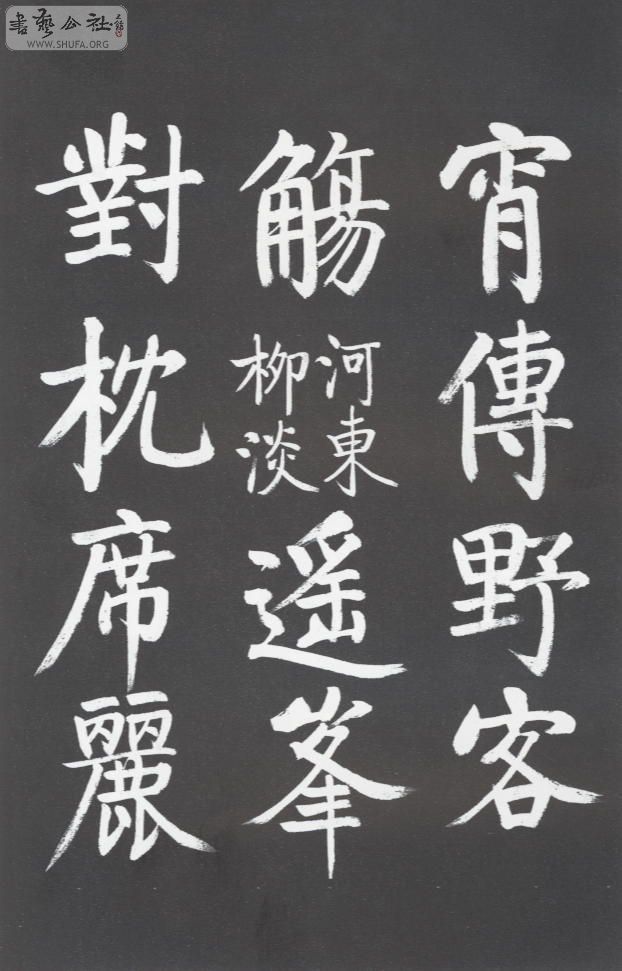 宵傳野客
觴河東
柳淡遥峯
對枕席麗
書藝公社
WWW.SHUFA.ORG